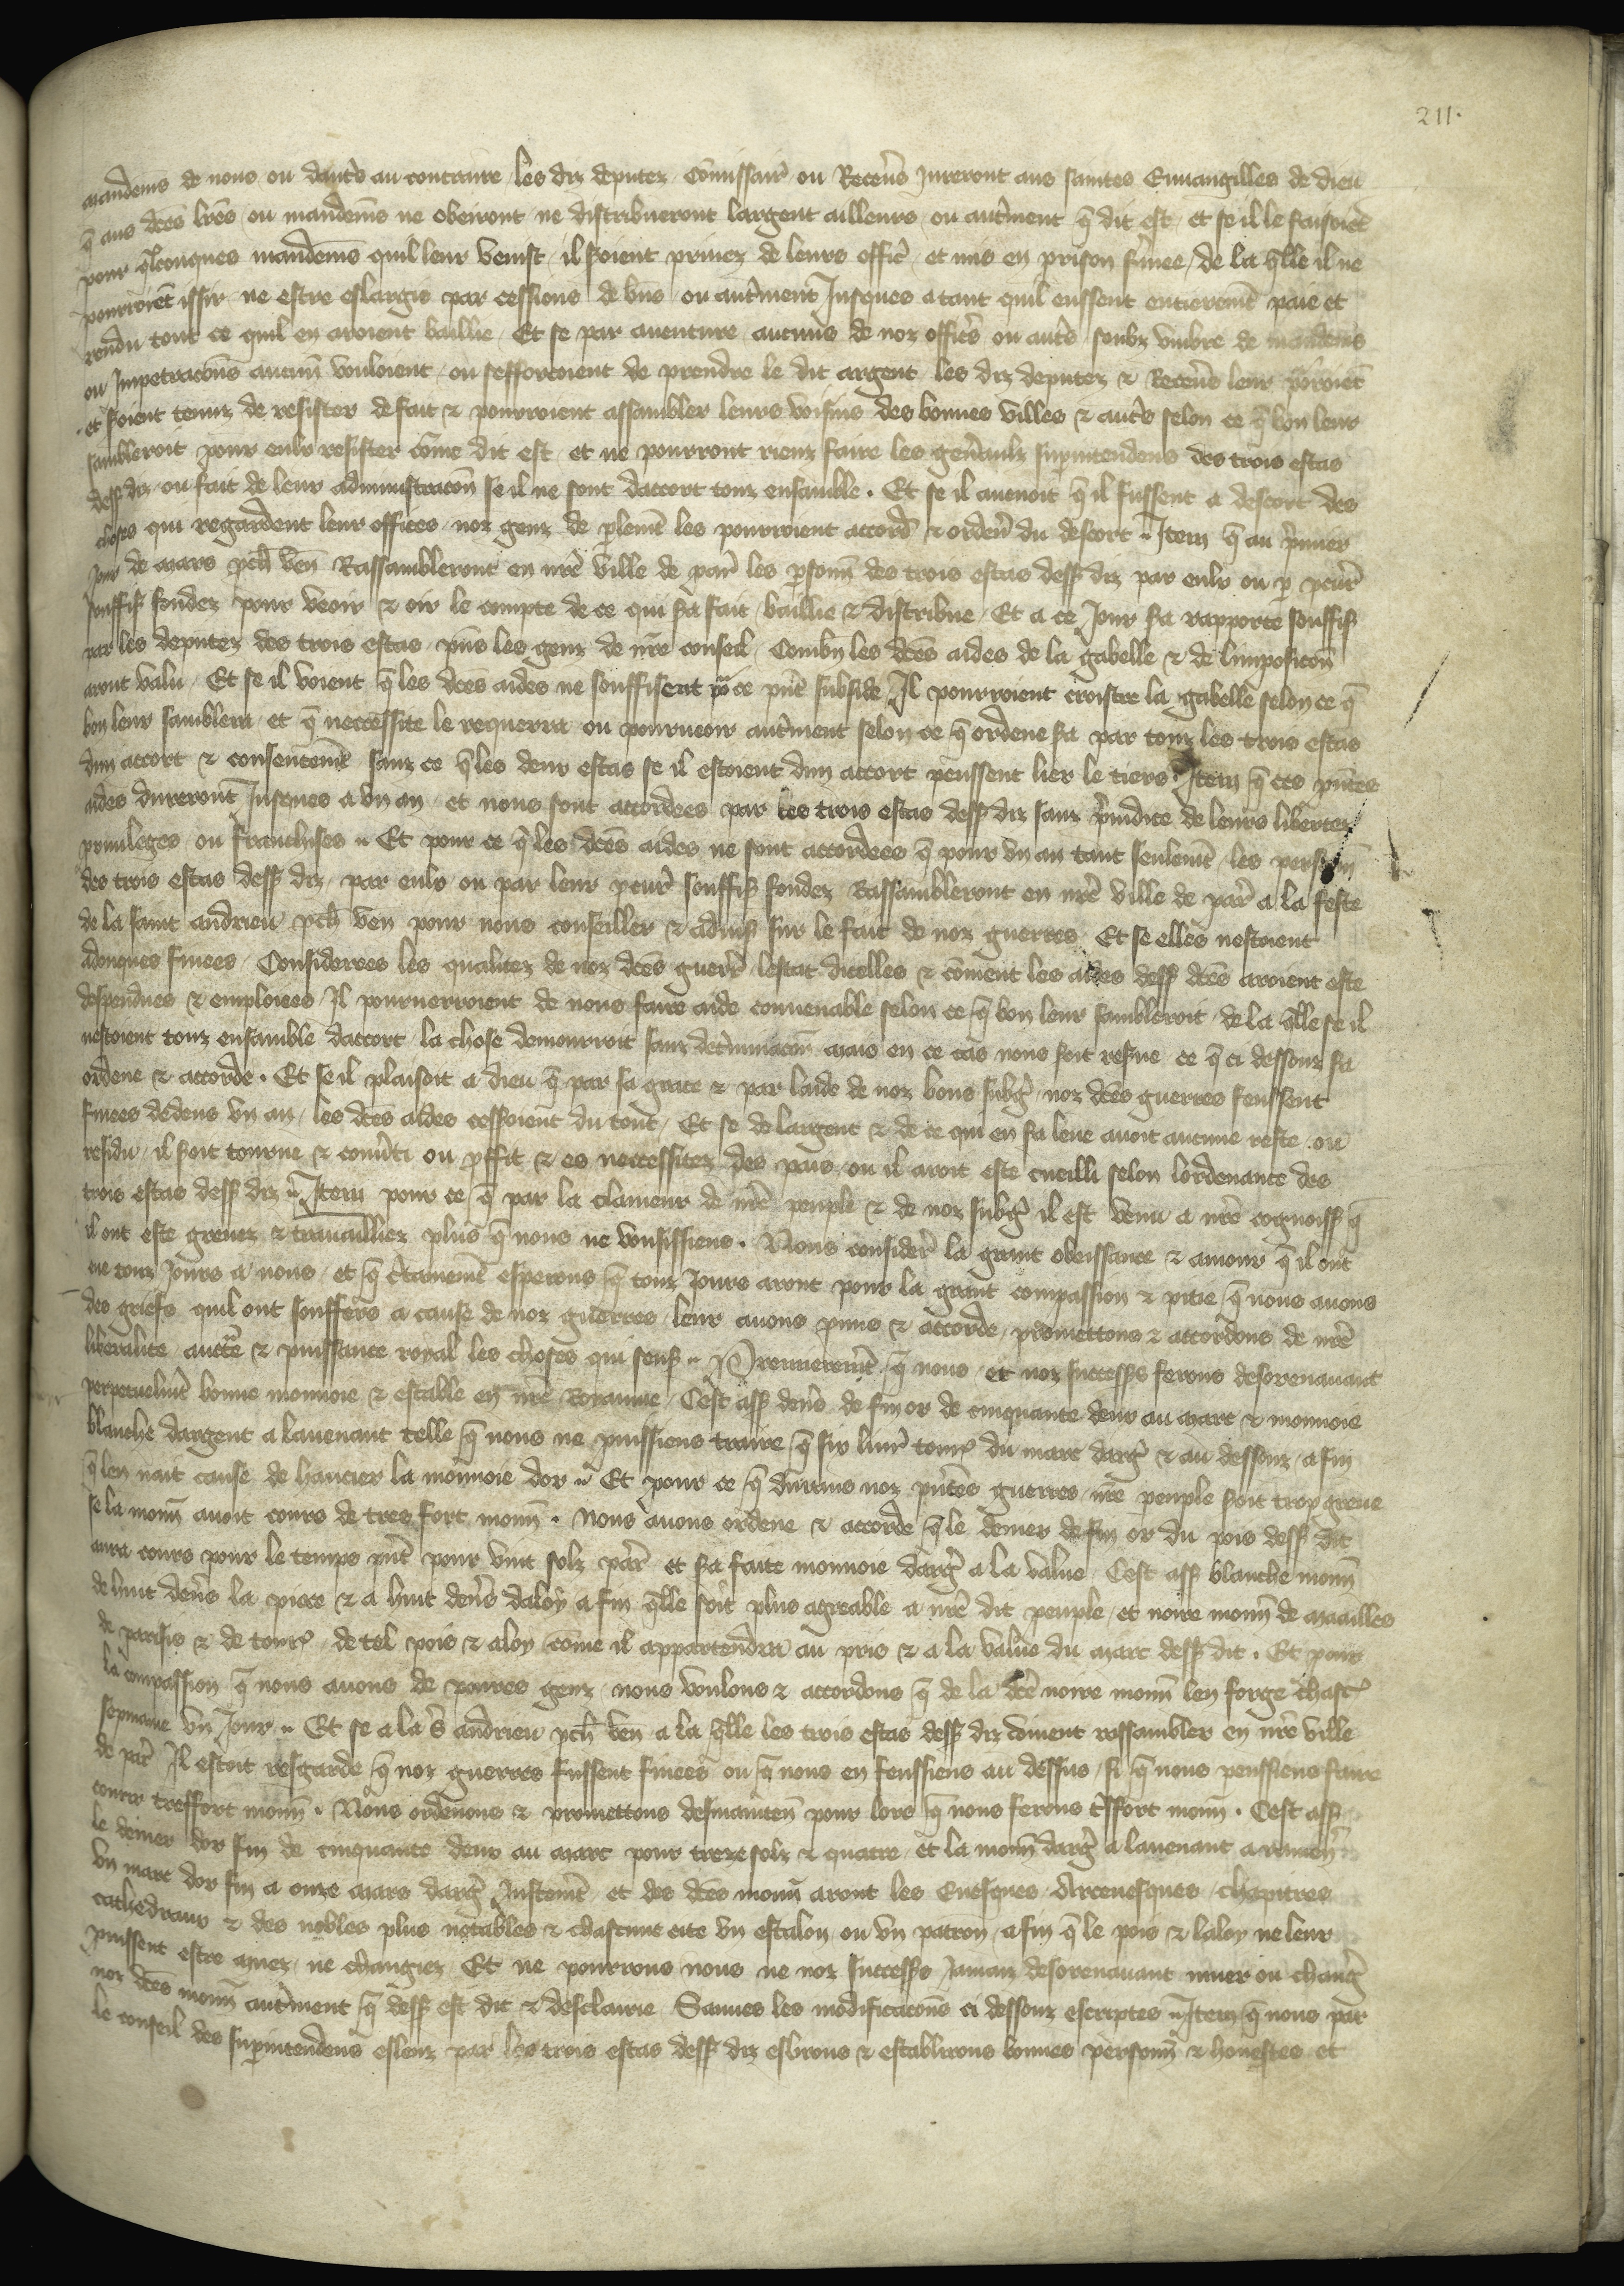 211.
mandemens de nous ou dautres au contraire les diz deputez Commissaires ou Receveurs Jureront aus saintes Euuangilles de dieu
q̄ aus dc̄es lr̄es ou mandemēs ne obeiront ne distribueront largent ailleurs ou autrement q̄ dit est et se il le faisoiēt
pour qlconques mandemēs quil leur venist il soient priuez de leurs offic̄ et mis en prison fmee de la qlle il ne
pourroiēt issir ne estre eslargis par cessions de biens ou autrement Jusques a tant quil eussent entieremēt paie et
rendu tout ce quil en aroient baillie Et se par auenture aucuns de noz officrs ou autrs soubz vmbre de mandemens
ou Impetracōns aucun vouloient ou sefforcoient de prendre le dit argent les diz deputez & Receueurs leur porroiēt
et soient tenuz de resister de fait & pourroient assambler leurs voisins des bonnes villes & autrs selon ce q̄ bon leur
sambleroit pour eulx resister cōme dit est et ne pourront riens faire les gen̄aulx supintendens des trois estas
dess diz ou fait de leur administracōn se il ne sont daccort touz ensamble . Et se il auenoit q̄ il fussent a descort des
choses qui regardent leur offices noz genz de plemēt les pourroient accord̄ & ordener du descort Item q̄ au p̄mier
Jour de mars pch̄ ven̄ Rassambleront en nr̄e ville de par̄ les psonn̄ des trois estas dess diz par eulx ou p pcur̄
souffis̄ fondez pour veoir & oir le compte de ce qui sa fait baillie & distribue Et a ce Jour sa rapporte souffis̄
par les deputez des trois estas pn̄s les genz de nr̄e conseil Combn̄ les dc̄es aides de la gabelle & de limposicōn
aront valu Et se il voient q̄ les dc̄es aides ne souffisent po ce pn̄t subside Il pourroient croistre la gabelle selon ce q̄
bon leur samblera et q̄ neccessite le requerra ou pourueoir autrement selon ce q̄ ordene sa par touz les trois estas
dun accort & consentemēt sanz ce q̄ les deux estas se il estoient dun accort peussent lier le tiers Item q̄ ces pn̄tes
aides dureront Jusques a vn an et nous sont accordees par les trois estas dess diz sanz p̄iudice de leurs libertez
priuileges ou franchises Et pour ce q̄ les dc̄es aides ne sont accordees q̄ pour vn an tant seulemēt les personn̄
des trois estas dess diz par eulx ou par leur pcur̄ souffis̄ fondez Rassambleront en nr̄e ville de par̄ a la feste
de la saint andrieu pch̄ ven pour nous conseiller & aduis̄ sur le fait de noz guerres Et se elles nestoient
adonques finees Considerees les qualitez de noz dc̄es guerr̄ lestat dicelles & cōment les aides dess dc̄es aroient este
despendues & emploiees Il pourueroient de nous faire aide conuenable selon ce q̄ bon leur sambleroit de la qlle se il
nestoient touz ensamble daccort la chose demourroit sanz det̄minacōn mais en ce cas nous soit resrue ce q̄ ci dessouz sa
ordene & accorde . Et se il plaisoit a dieu q̄ par sa grace & par laide de noz bons subḡ noz dc̄es guerres feussent
finees dedens vn an les dc̄es aides cessoient du tout Et se de largent & de ce qui en sa leue auoit aucune reste ou
residu il soit tourne & conuti ou pffit & es neccessitez des pais ou il aroit este cueilli selon lordenance des
trois estas dess diz Item pour ce q̄ par la clameur de nr̄e peuple & de noz subḡ il est venu a nr̄e cognoiss̄ q̄
il ont este greuez & trauailliez plus q̄ nous ne voulsissiens . Nous consider̄ la grant obeissance & amour q̄ il ont
eue touz Jours a nous et q̄ c̄tainemēt esperons q̄ touz Jours aront pour la grant compassion & pitie q̄ nous auons
des griefs quil ont souffers a cause de noz guerres leur auons pmis & accorde promettons & accordons de nr̄e
liberalite auctē & puissance royal les choses qui sens̄ Premieremēt q̄ nous et noz successrs ferons desorenauant
perpetuelmēt bonne monnoie & estable en nr̄e Royaume Cest ass̄ denrs de fin or de cinquante deux au marc & monnoie
blanche dargent a lauenant telle q̄ nous ne puissiens traire q̄ six liur̄ tourn̄ du marc darḡ & au dessouz a fin
q̄ len nait cause de haucier la monnoie dor Et pour ce q̄ durans noz pn̄tes guerres nr̄e peuple soit trop greue
se la monn̄ auoit cours de tres fort monn̄ . Nous auons ordene & accorde q̄ le denier de fin or du pois dess dit
aura cours pour le temps pn̄t pour vint solz par̄ et sa faite monnoie darḡ a la value Cest ass̄ blanche monn̄
de huit denrs la piece & a huit denrs daloy a fin qlle soit plus agreable a nr̄e dit peuple et noire monn̄ de mailles
de parisis & de tourn̄ de tel pois & aloy cōme il appartendra au pris & a la value du marc dess dit . Et pour
la compassion q̄ nous auons de poures genz nous voulons & accordons q̄ de la dc̄e noire monn̄ len forge chascun̄
sepmaine vn Jour Et se a la s̄ andrieu pch̄ ven a la qlle les trois estas dess diz doiuent rassambler en nr̄e ville
de par̄ Il estoit resgarde q̄ noz guerres fussent finees ou q̄ nous en feussiens au dessus si q̄ nous peussiens faire
courir tresfort monn̄ . Nous ordenons & promettons desmaintenn̄ pour lors q̄ nous ferons tresfort monn̄ . Cest ass̄
le denier dor fin de cinquante deux au marc pour treze solz & quatre et la monn̄ darḡ a lauenant a ramener
vn marc dor fin a onze mars darḡ Justemēt et des dc̄es monn̄ aront les Euesques Arceuesques chapitres
cathedraus & des nobles plus notables & chascune cite vn estalon ou vn patron a fin q̄ le pois & laloy ne leur
puissent estre muez ne changiez Et ne pourrons nous ne noz successrs Jamaiz desorenauant muer ou chanḡ
noz dc̄es monn̄ autrement q̄ dess est dit & desclairie Sauues les modificacōns ci dessouz escriptes Item q̄ nous par
le conseil des supintendens esleuz par les trois estas dess diz eslirons & establirons bonnes personn̄ & honestes et